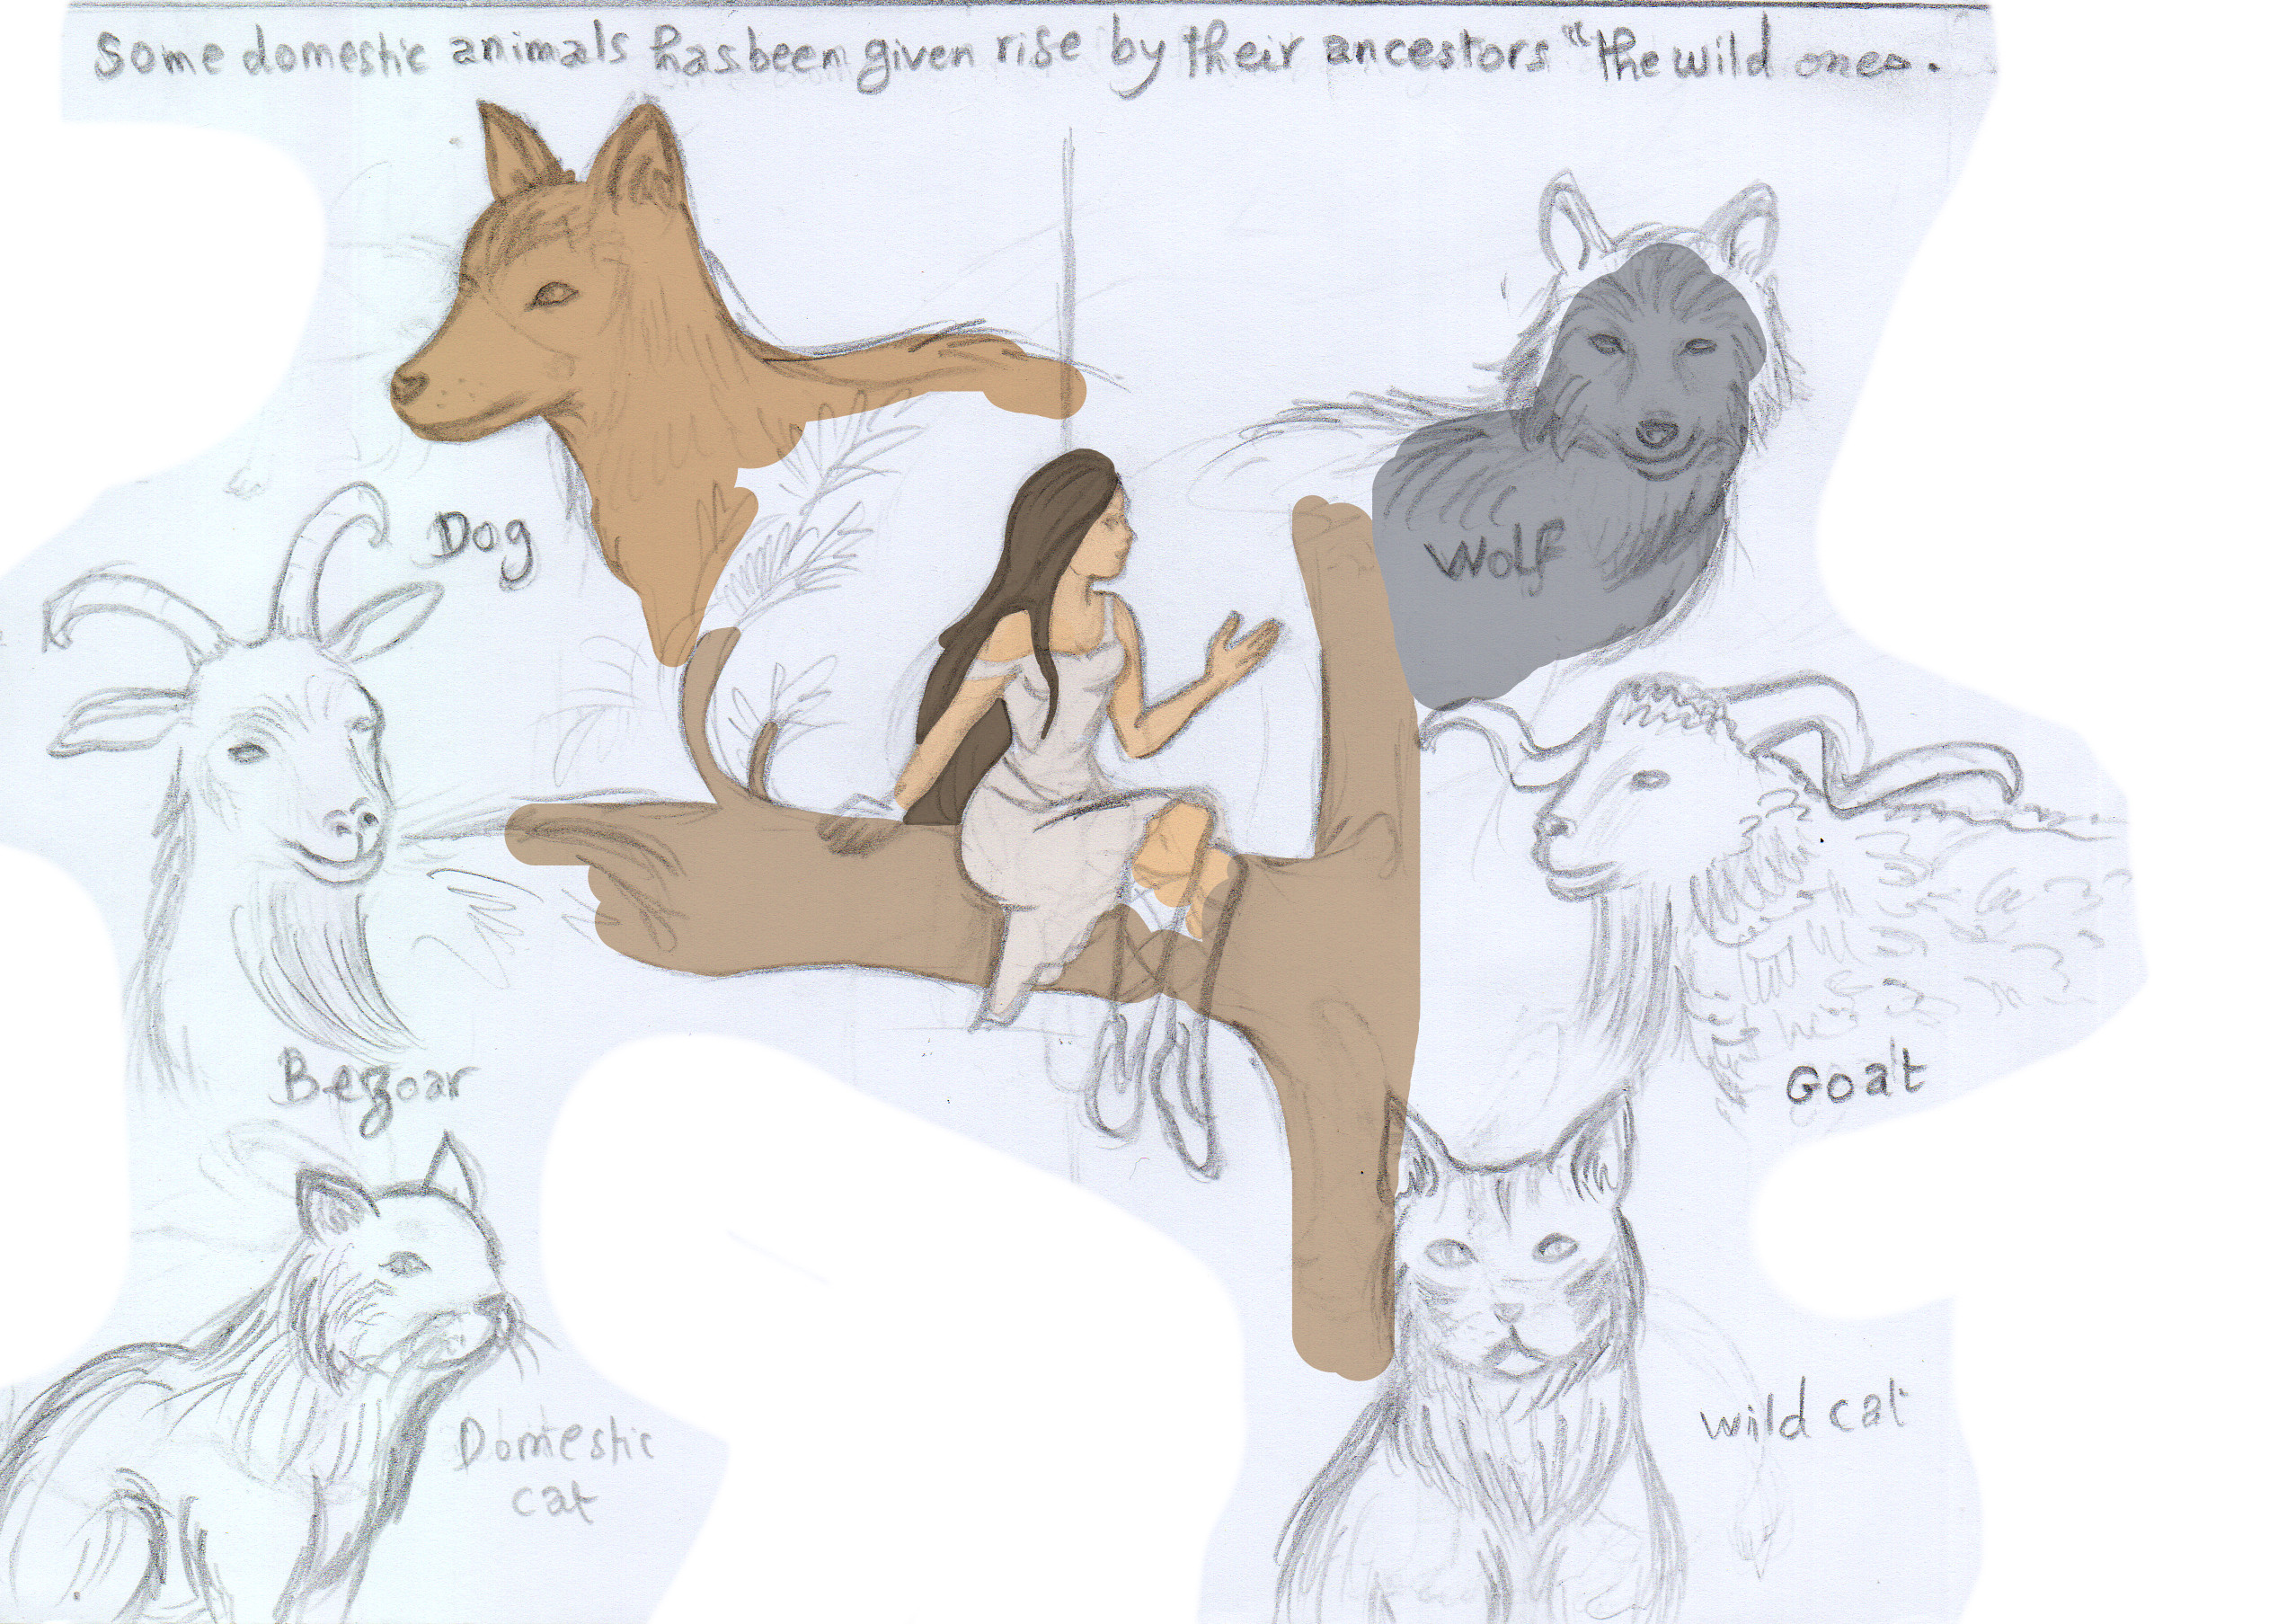 Some domestic animals has been given rise by their ancestors "the wild ones.
Dog
Wolf
Bezoar
Goat
Domestic
cat
wild cat